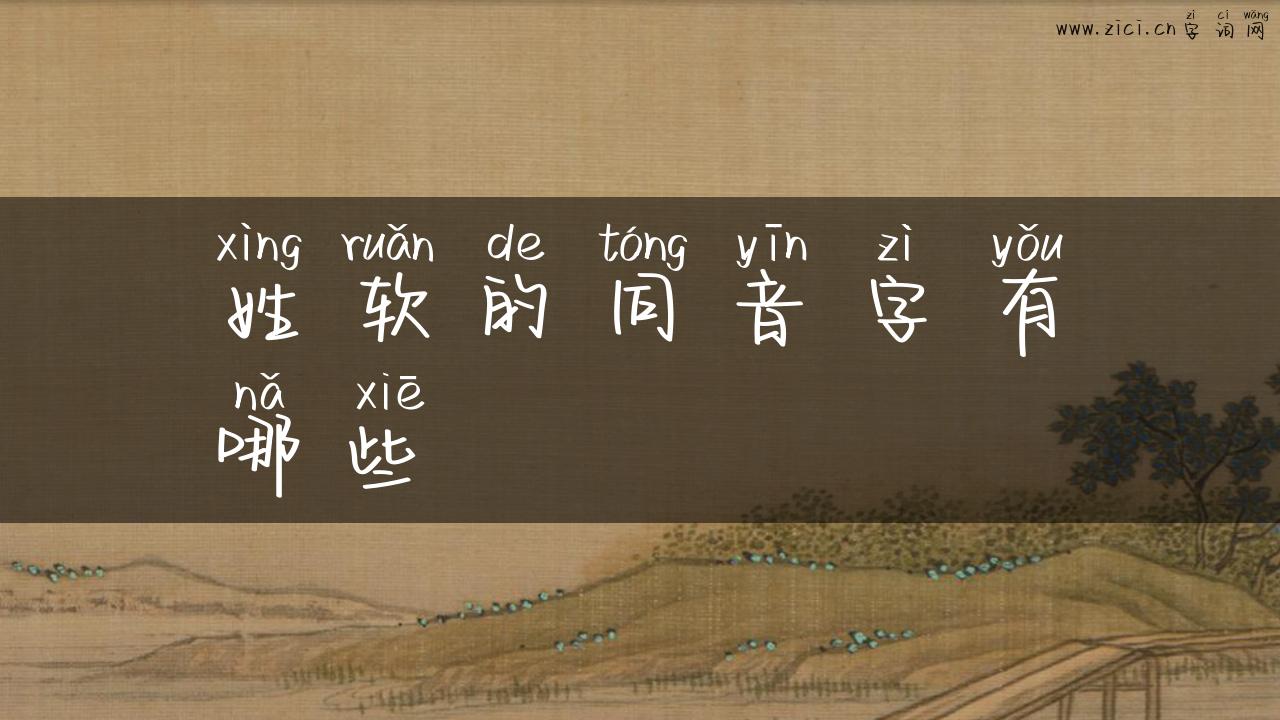 zì cí wǎng
www.zici.cn字词网
xìng ruǎn de tóng yīn zì yǒu
姓软的同音字有
nǎ xiē
哪些